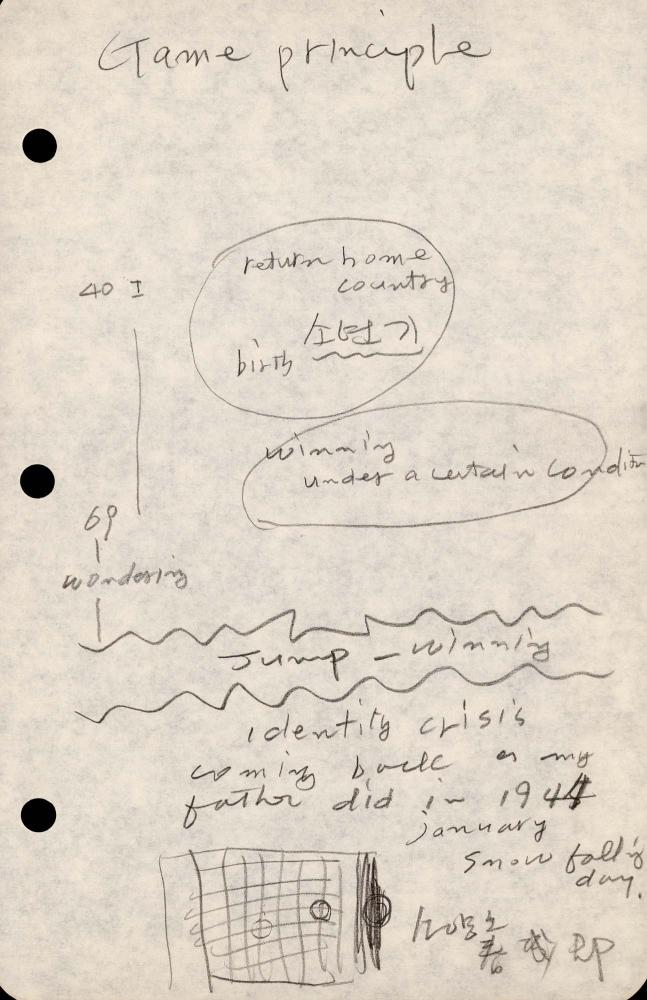 Game principle
return home
country
40 I
birth 소년기
winning
under a certain condition
69
wondering
Jump - winning
identity crisis
coming back as my
father did in 1944
january
snow falling
day.